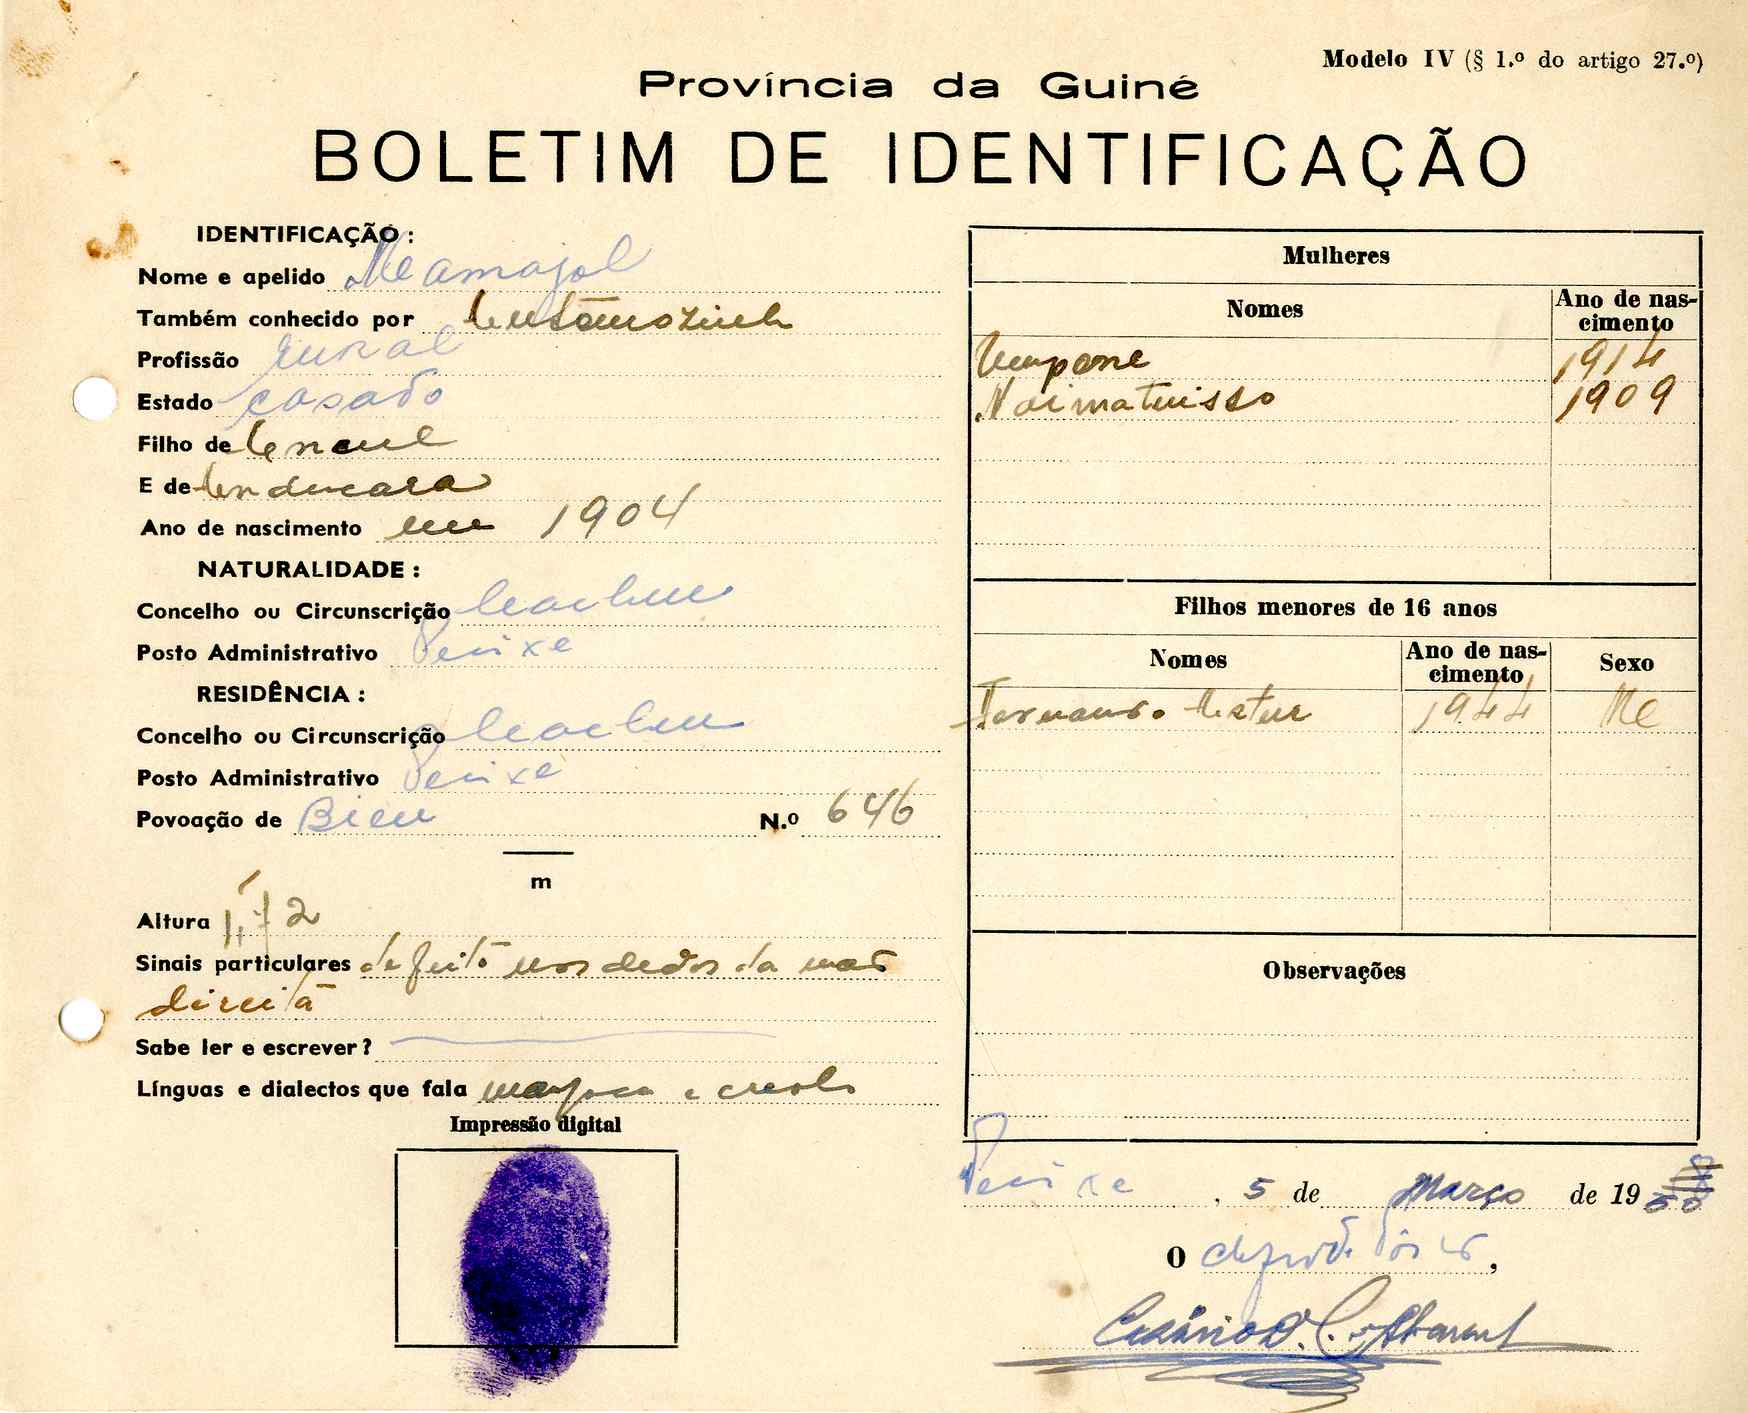 Modelo IV (§ 1.º do artigo 27.º)
Província da Guiné
BOLETIM DE IDENTIFICAÇÃO
IDENTIFICAÇÃO :
Nome e apelido
Também conhecido por
Profissão rural
Estado casado
Filho de
E de
Ano de nascimento em 1904
NATURALIDADE :
Concelho ou Circunscrição Cacheu
Posto Administrativo Pecixe
RESIDÊNCIA :
Concelho ou Circunscrição Cacheu
Posto Administrativo Pecixe
Povoação de N.º 646
m
Altura 1,72
Sinais particulares defeito nos dedos da mão
direita
Sabe ler e escrever?
Línguas e dialectos que fala e creolo
Impressão digital
Mulheres
Nomes Ano de nas-
cimento
1914
1909
Filhos menores de 16 anos
Nomes Ano de nas-
cimento Sexo
1944 M
Observações
Pecixe , 5 de Março de 19
O ,